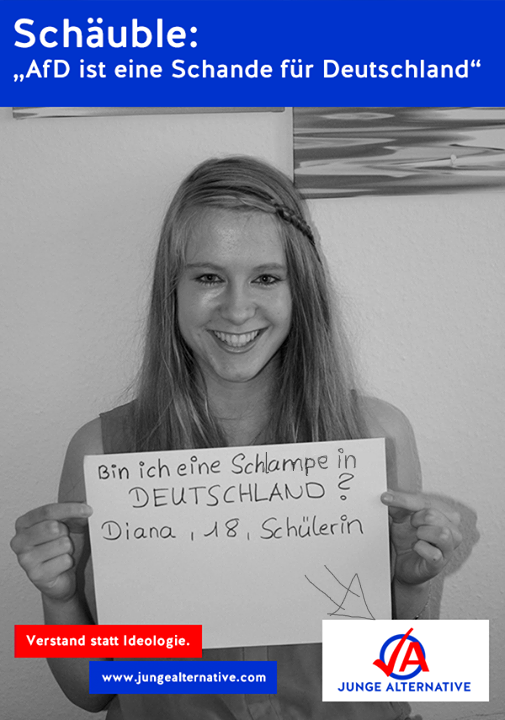 Schäuble:
„AfD ist eine Schande für Deutschland“
Bin ich eine Schlampe in
DEUTSCHLAND ?
Diana , 18 , Schülerin
Verstand statt Ideologie.
www.jungealternative.com
JA
JUNGE ALTERNATIVE